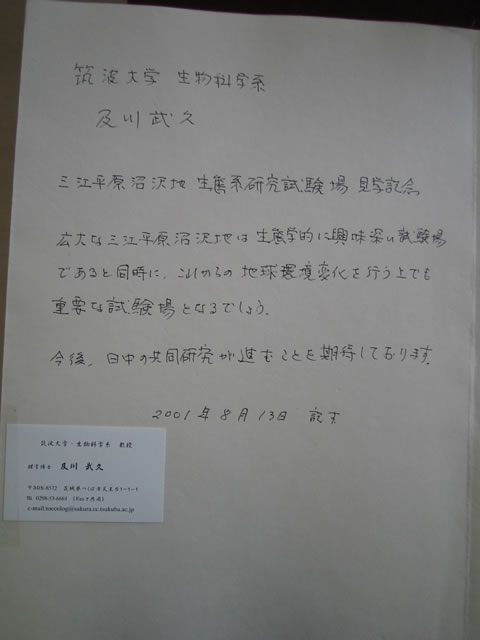 筑波大学 生物科学系
及川武久
三江平原沼沢地 生態系研究試験場 見学記念
広大な三江平原沼沢地は生態学的に興味深い試験場
であると同時に、これからの地球環境変化を行う上でも
重要な試験場となるでしょう。
今後、日中の共同研究が進むことを期待しております。
2001年8月13日 記す
筑波大学・生物科学系 教授
理学博士 及川 武久
〒305-8572 茨城県つくば市天王台1-1-1
℡ 0298-53-6661 (Fax
e-mail:toecolog@sakura.cc.tsukuba.ac.jp